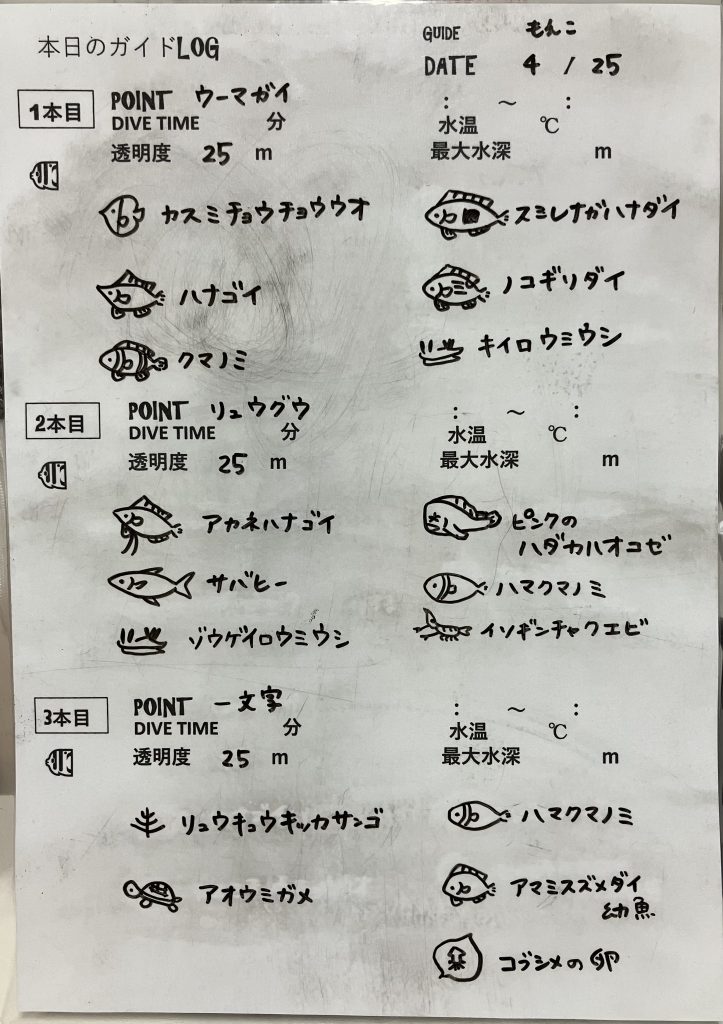 本日のガイドLOG
GUIDE もんこ
DATE 4 / 25
1本目
POINT ウーマガイ
DIVE TIME 分
: ～ :
水温 ℃
透明度 25 m
最大水深 m
カスミチョウチョウウオ
スミレナガハナダイ
ハナゴイ
ノコギリダイ
クマノミ
キイロウミウシ
2本目
POINT リュウグウ
DIVE TIME 分
: ～ :
水温 ℃
透明度 25 m
最大水深 m
アカネハナゴイ
ピンクの
ハダカハオコゼ
サバヒー
ハマクマノミ
ゾウゲイロウミウシ
イソギンチャクエビ
3本目
POINT 一文字
DIVE TIME 分
: ～ :
水温 ℃
透明度 25 m
最大水深 m
リュウキュウキッカサンゴ
ハマクマノミ
アオウミガメ
アマミスズメダイ
幼魚
コブシメの卵